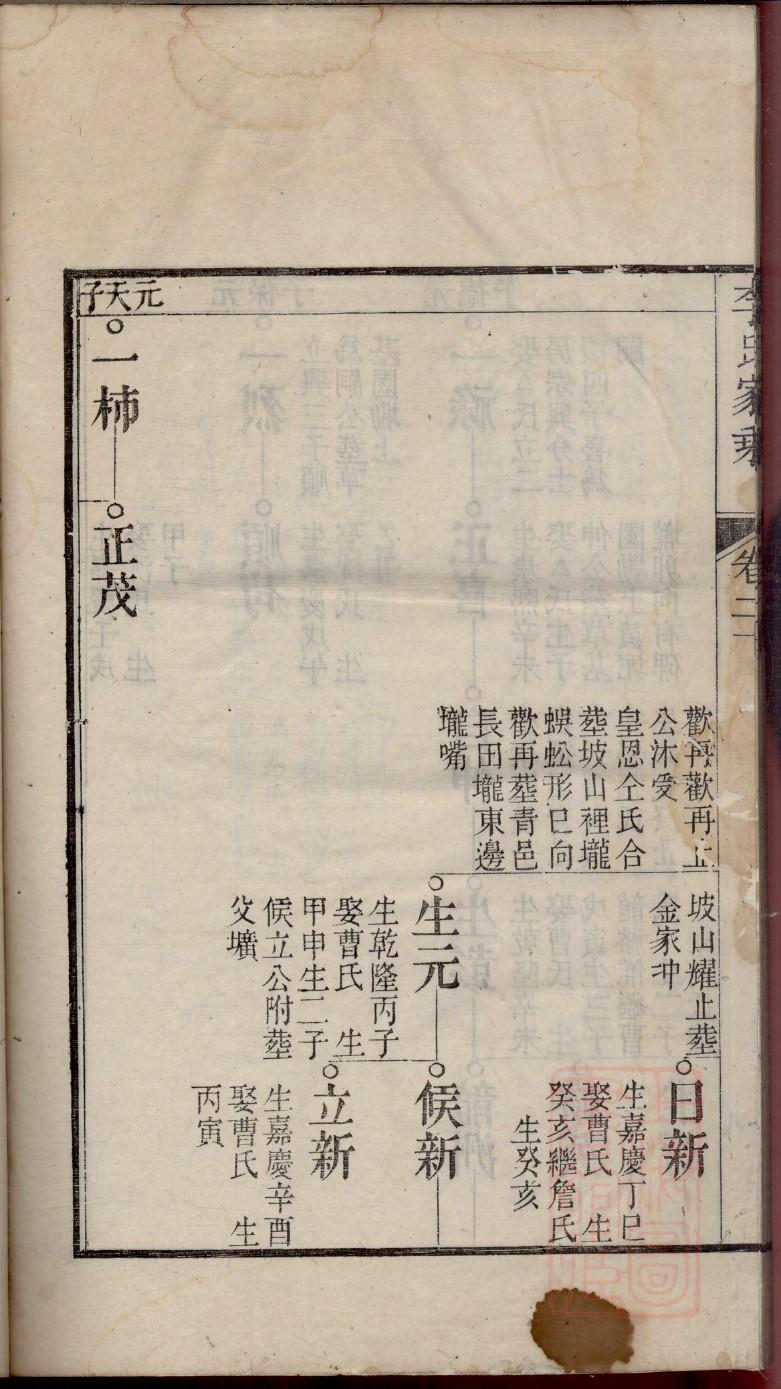 李氏家乘
卷二十
歡再歡再止
公沐受
皇恩仝氏合
塟坡山裡壠
蜈蚣形巳向
歡再塟青邑
長田壠東邊
壠嘴
坡山耀止塟
金家冲
日新
生嘉慶丁巳
娶曹氏　生
癸亥繼詹氏
生癸亥
生元
生乾隆丙子
娶曹氏　生
甲申生二子
候立公附塟
父壙
候新
立新
生嘉慶辛酉
娶曹氏　生
丙寅
元天子
一柿
正茂